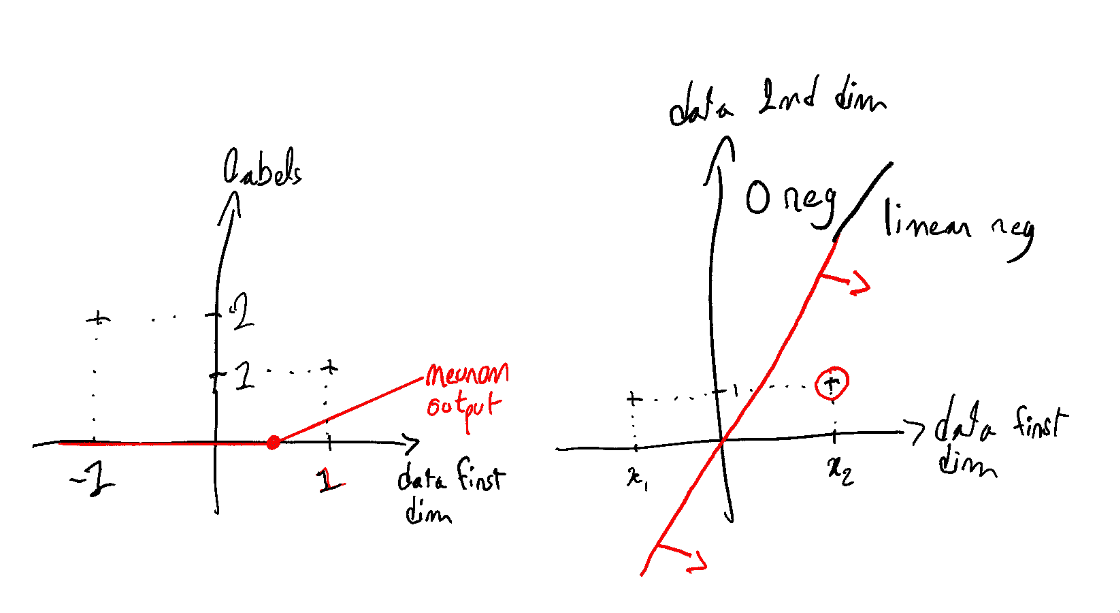 labels
2
1
neuron
output
-1
1
data first
dim
data 2nd dim
0 reg
linear reg
1
data first
dim
x₁
x₂